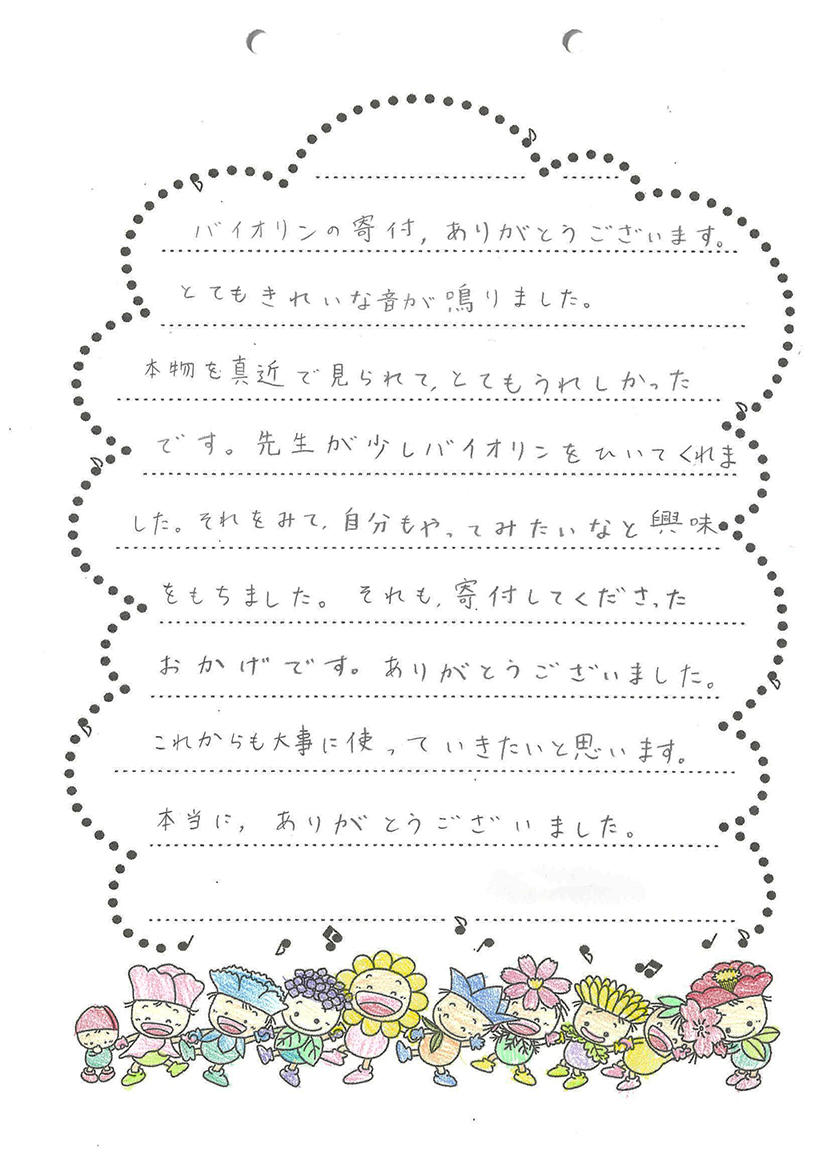 バイオリンの寄付,ありがとうございます。
とてもきれいな音が鳴りました。
本物を真近で見られて,とてもうれしかった
です。先生が少しバイオリンをひいてくれま
した。それをみて,自分もやってみたいなと興味
をもちました。それも,寄付してくださった
おかげです。ありがとうございました。
これからも大事に使っていきたいと思います。
本当に,ありがとうございました。